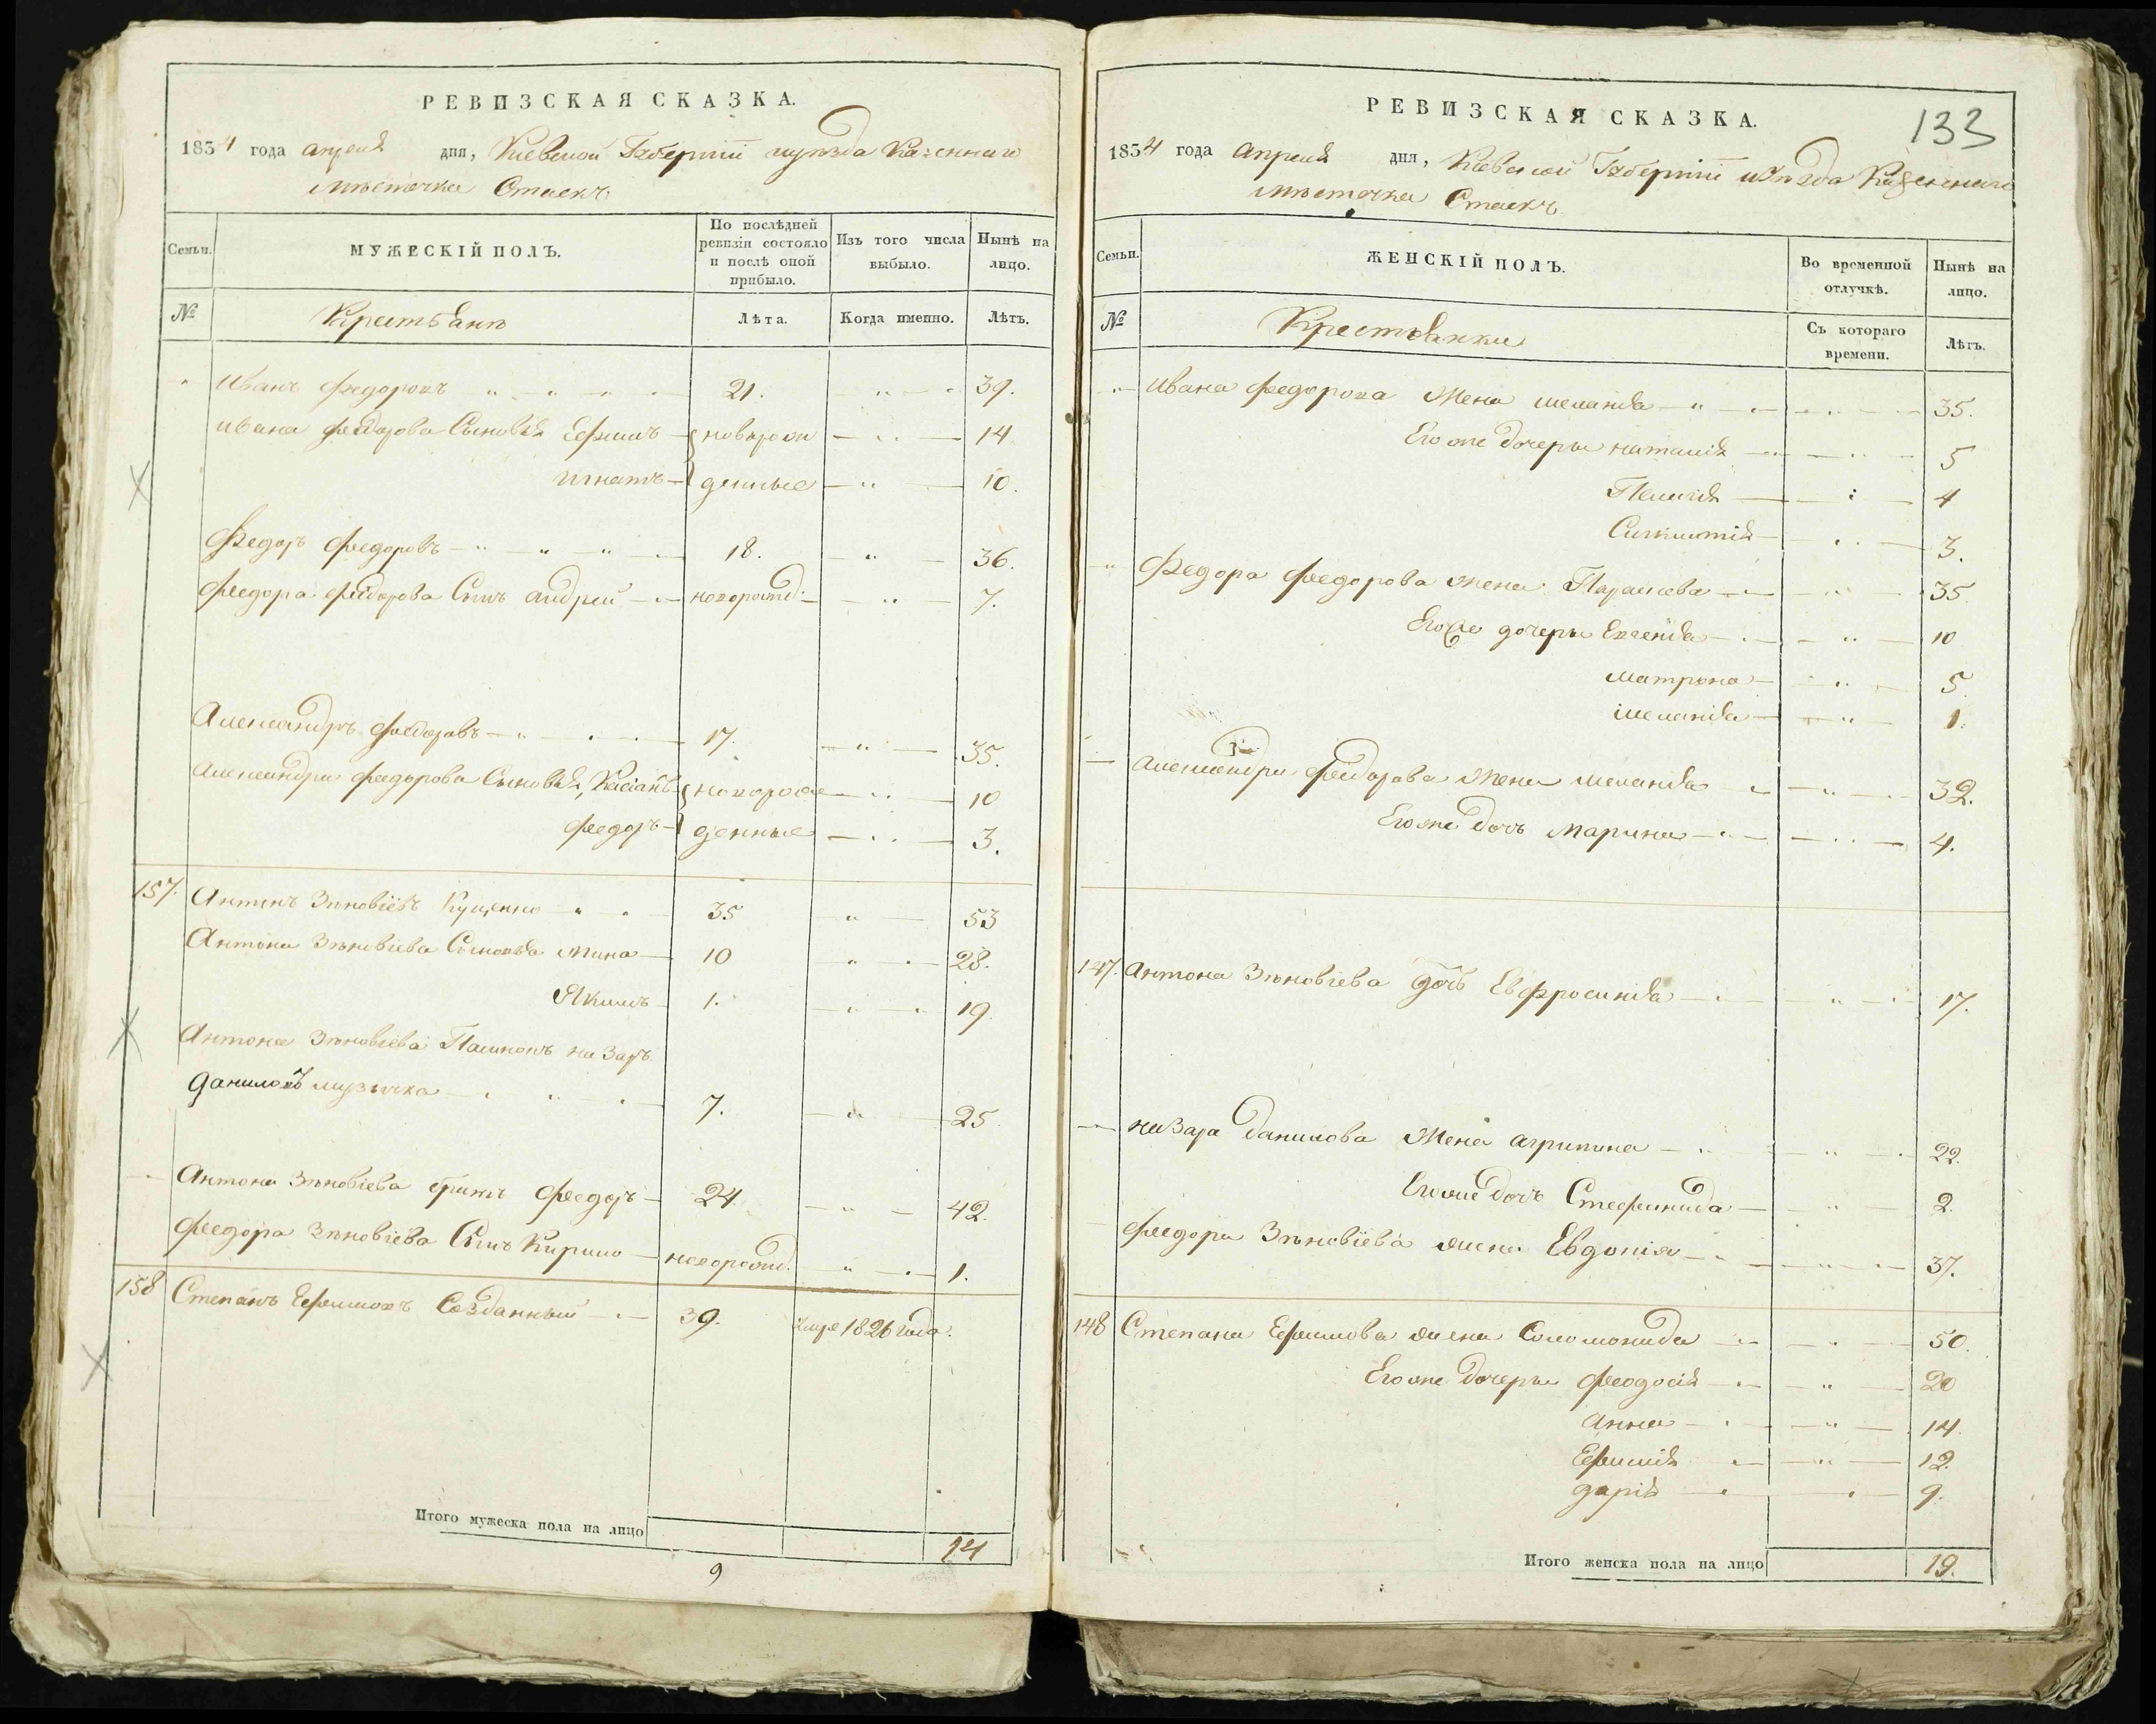 РЕВИЗСКАЯ СКАЗКА.
1834 года апреля дня, Киевской Губернiи и уѣзда Казеннаго
мѣстечка Стаекъ
Семьи.
МУЖЕСКІЙ ПОЛЪ.
По послѣдней ревизіи состояло и послѣ оной прибыло.
Изъ того числа выбыло.
Нынѣ на лицо.
№
Крестьянѣ
Лѣта.
Когда именно.
Лѣтъ.
Иванъ Федоровъ 21. 39.
Ивана Федорова Сыновья Ефимъ новорож 14
Игнатъ денные 10.
Федоръ Федоровъ 18. 36.
Федора Федорова Сынъ Андрей новорожд. 7.
Александръ Федоровъ 17. 35.
Александра Федорова Сыновья, Касіанъ новорож 10
Федоръ денные 3.
157. Антонъ Зѣновіевъ Куценко 35 53
Антона Зѣновіева Сыновья Мина 10 28.
Якимъ 1. 19.
Антона Зѣновіева Пасинокъ Назаръ
Даниловъ Музычка 7. 25
Антона Зѣновіева братъ Федоръ 24. 42.
Федора Зѣновіева Сынъ Кирило новорожд. 1.
158 Степанъ Ефимовъ Созданный 39. умре 1826 года.
Итого мужеска пола на лицо 14
9
133
РЕВИЗСКАЯ СКАЗКА.
1834 года Апреля дня, Киевской Губерніи и уѣзда Казеннаго
мѣстечка Стаекъ
Семьи.
ЖЕНСКІЙ ПОЛЪ.
Во временной отлучкѣ.
Нынѣ на лицо.
№
Крестьянки
Съ котораго времени.
Лѣтъ.
Ивана Федорова Жена Меланія 35.
Его же дочери Наталія 5
Пелагія 4
3.
Федора Федорова жена Параскева 35
Его же дочери Евгенія 10
Матрона 5.
Меланія 1.
Александра Федорова Жена Меланія 32.
Его же дочь Марина 4.
147. Антона Зѣновіева дочь Евфросинія 17.
Назара Данилова Жена Агрипина 22.
Его же дочь Стефанида 2
Федора Зѣновіева жена Евдокія 37.
148 Степана Ефимова жена Соломонида 50.
Его же дочери Феодосія 20
Анна 14.
Ефимія 12.
Дарія 9.
Итого женска пола на лицо 19.